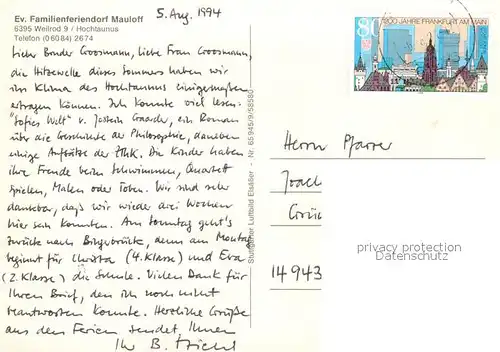 5. Aug. 1994
Ev. Familienferiendorf Mauloff
6395 Weilrod 9 / Hochtaunus
Telefon (0 60 84) 26 74
Lieber Bruder Groosmann, liebe Frau Groosmann,
die Hitzewelle dieses Sommers haben wir
im Klima des Hochtaunus einigermaßen
ertragen können. Ich konnte viel lesen:
"Sofies Welt" v. Jostein Gaarder, ein Roman
über die Geschichte der Philosophie, daneben
einige Aufsätze der ZThK. Die Kinder haben
ihre Freude beim Schwimmen, Quartett
spielen, Malen oder Toben. Wir sind sehr
dankbar, daß wir wieder drei Wochen
hier sein konnten. Am Sonntag geht's
zurück nach Bingerbrück, denn am Montag
beginnt für Christa (4. Klasse) und Eva
(2. Klasse) die Schule. Vielen Dank für
Ihren Brief, den ich noch nicht
beantworten konnte. Herzliche Grüße
aus den Ferien sendet Ihnen
Ihr B.
Stuttgarter Luftbild Elsäßer - Nr. 65 945/9/58580
80
1200 JAHRE FRANKFURT AM MAIN
Herrn Pfarrer
Joac
Grü
14943
privacy protection
not visible on originals